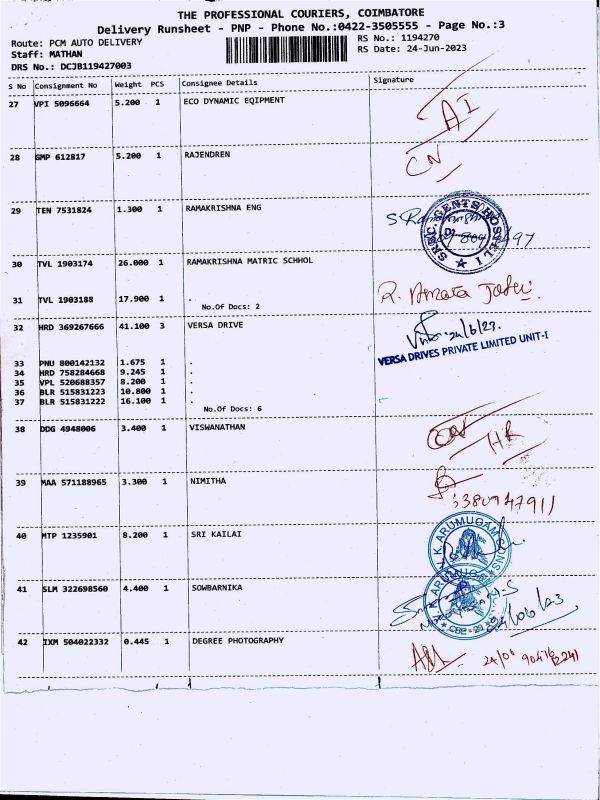 THE PROFESSIONAL COURIERS, COIMBATORE
Delivery Runsheet - PNP - Phone No.:0422-3505555 - Page No.:3
Route: PCM AUTO DELIVERY RS No.: 1194270
Staff: MATHAN RS Date: 24-Jun-2023
DRS No.: DCJB119427003
S No Consignment No Weight PCS Consignee Details Signature
27 VPI 5096664 5.200 1 ECO DYNAMIC EQIPMENT
AI
28 GMP 612817 5.200 1 RAJENDREN
CN
29 TEN 7531824 1.300 1 RAMAKRISHNA ENG
30 TVL 1903174 26.000 1 RAMAKRISHNA MATRIC SCHHOL
31 TVL 1903188 17.900 1 .
No.Of Docs: 2
32 HRD 369267666 41.100 3 VERSA DRIVE
24/6/23.
VERSA DRIVES PRIVATE LIMITED UNIT-I
33 PNU 800142132 1.675 1 .
34 HRD 758284668 9.245 1 .
35 VPL 520688357 8.200 1 .
36 BLR 515831223 10.800 1 .
37 BLR 515831222 16.100 1 .
No.Of Docs: 6
38 DDG 4948006 3.400 1 VISWANATHAN
HR
39 MAA 571188965 3.300 1 NIMITHA
40 MTP 1235901 8.200 1 SRI KAILAI
41 SLM 322698560 4.400 1 SOWBARNIKA
24/06/23
42 IXM 504022332 0.445 1 DEGREE PHOTOGRAPHY
24/06